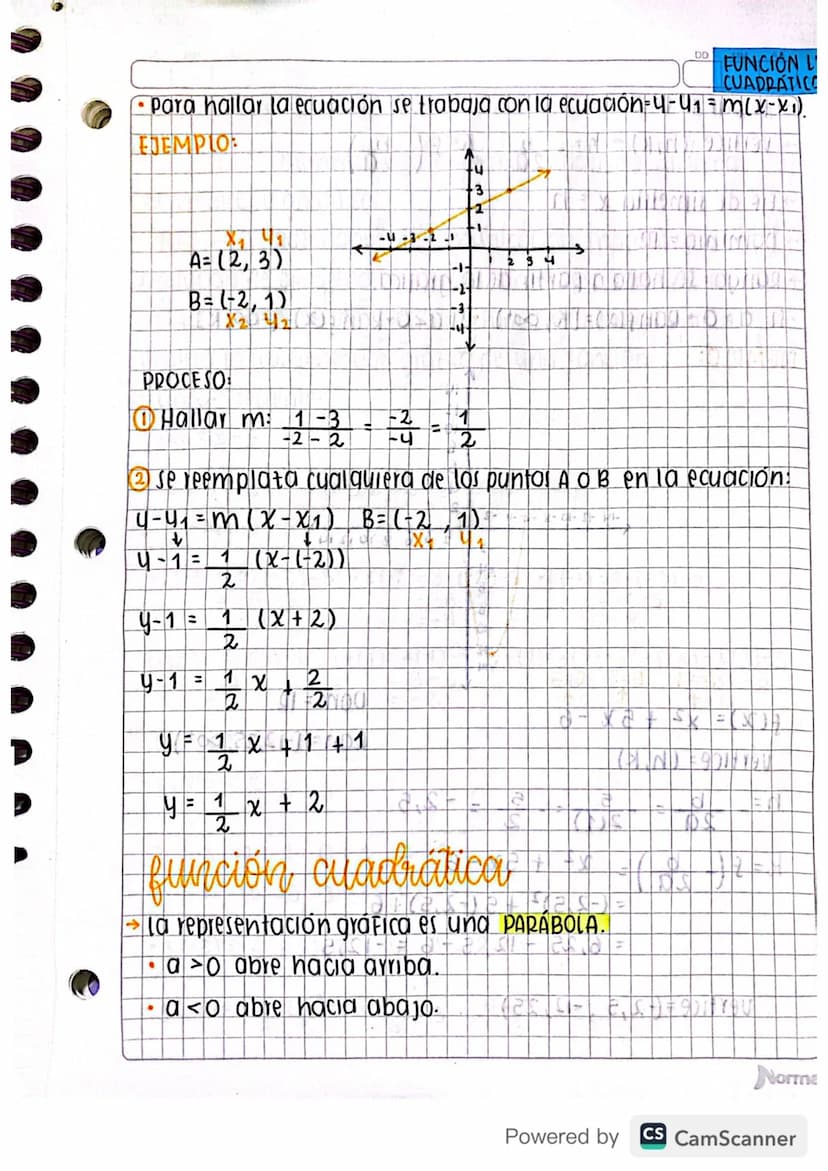 DD
FUNCIÓN L
CUADRÁTIC
• Para hallar la ecuación se trabaja con la ecuación=y-y₁ = m(x-x₁).
EJEMPLO:
4
3
2
1
-4 -3 -2 -1
1 2 3 4
-1
-2
-3
-4
x₁ y₁
A=(2, 3)
B=(-2, 1)
x₂ y₂
PROCESO:
① Hallar m: 1-3/-2-2 = -2/-4 = 1/2
② se reemplata cualquiera de los puntos A o B en la ecuación:
y-y₁ = m(x-x₁) B=(-2, 1)
x₁ y₁
y-1 = 1/2 (x-(-2))
y-1 = 1/2 (x+2)
y-1 = 1/2 x + 2/2
y = 1/2 x + 1 + 1
y = 1/2 x + 2
función cuadrática
→ la representación gráfica es una PARÁBOLA.
• a >0 abre hacia arriba.
• a <0 abre hacia abajo.
Norma
Powered by CS CamScanner